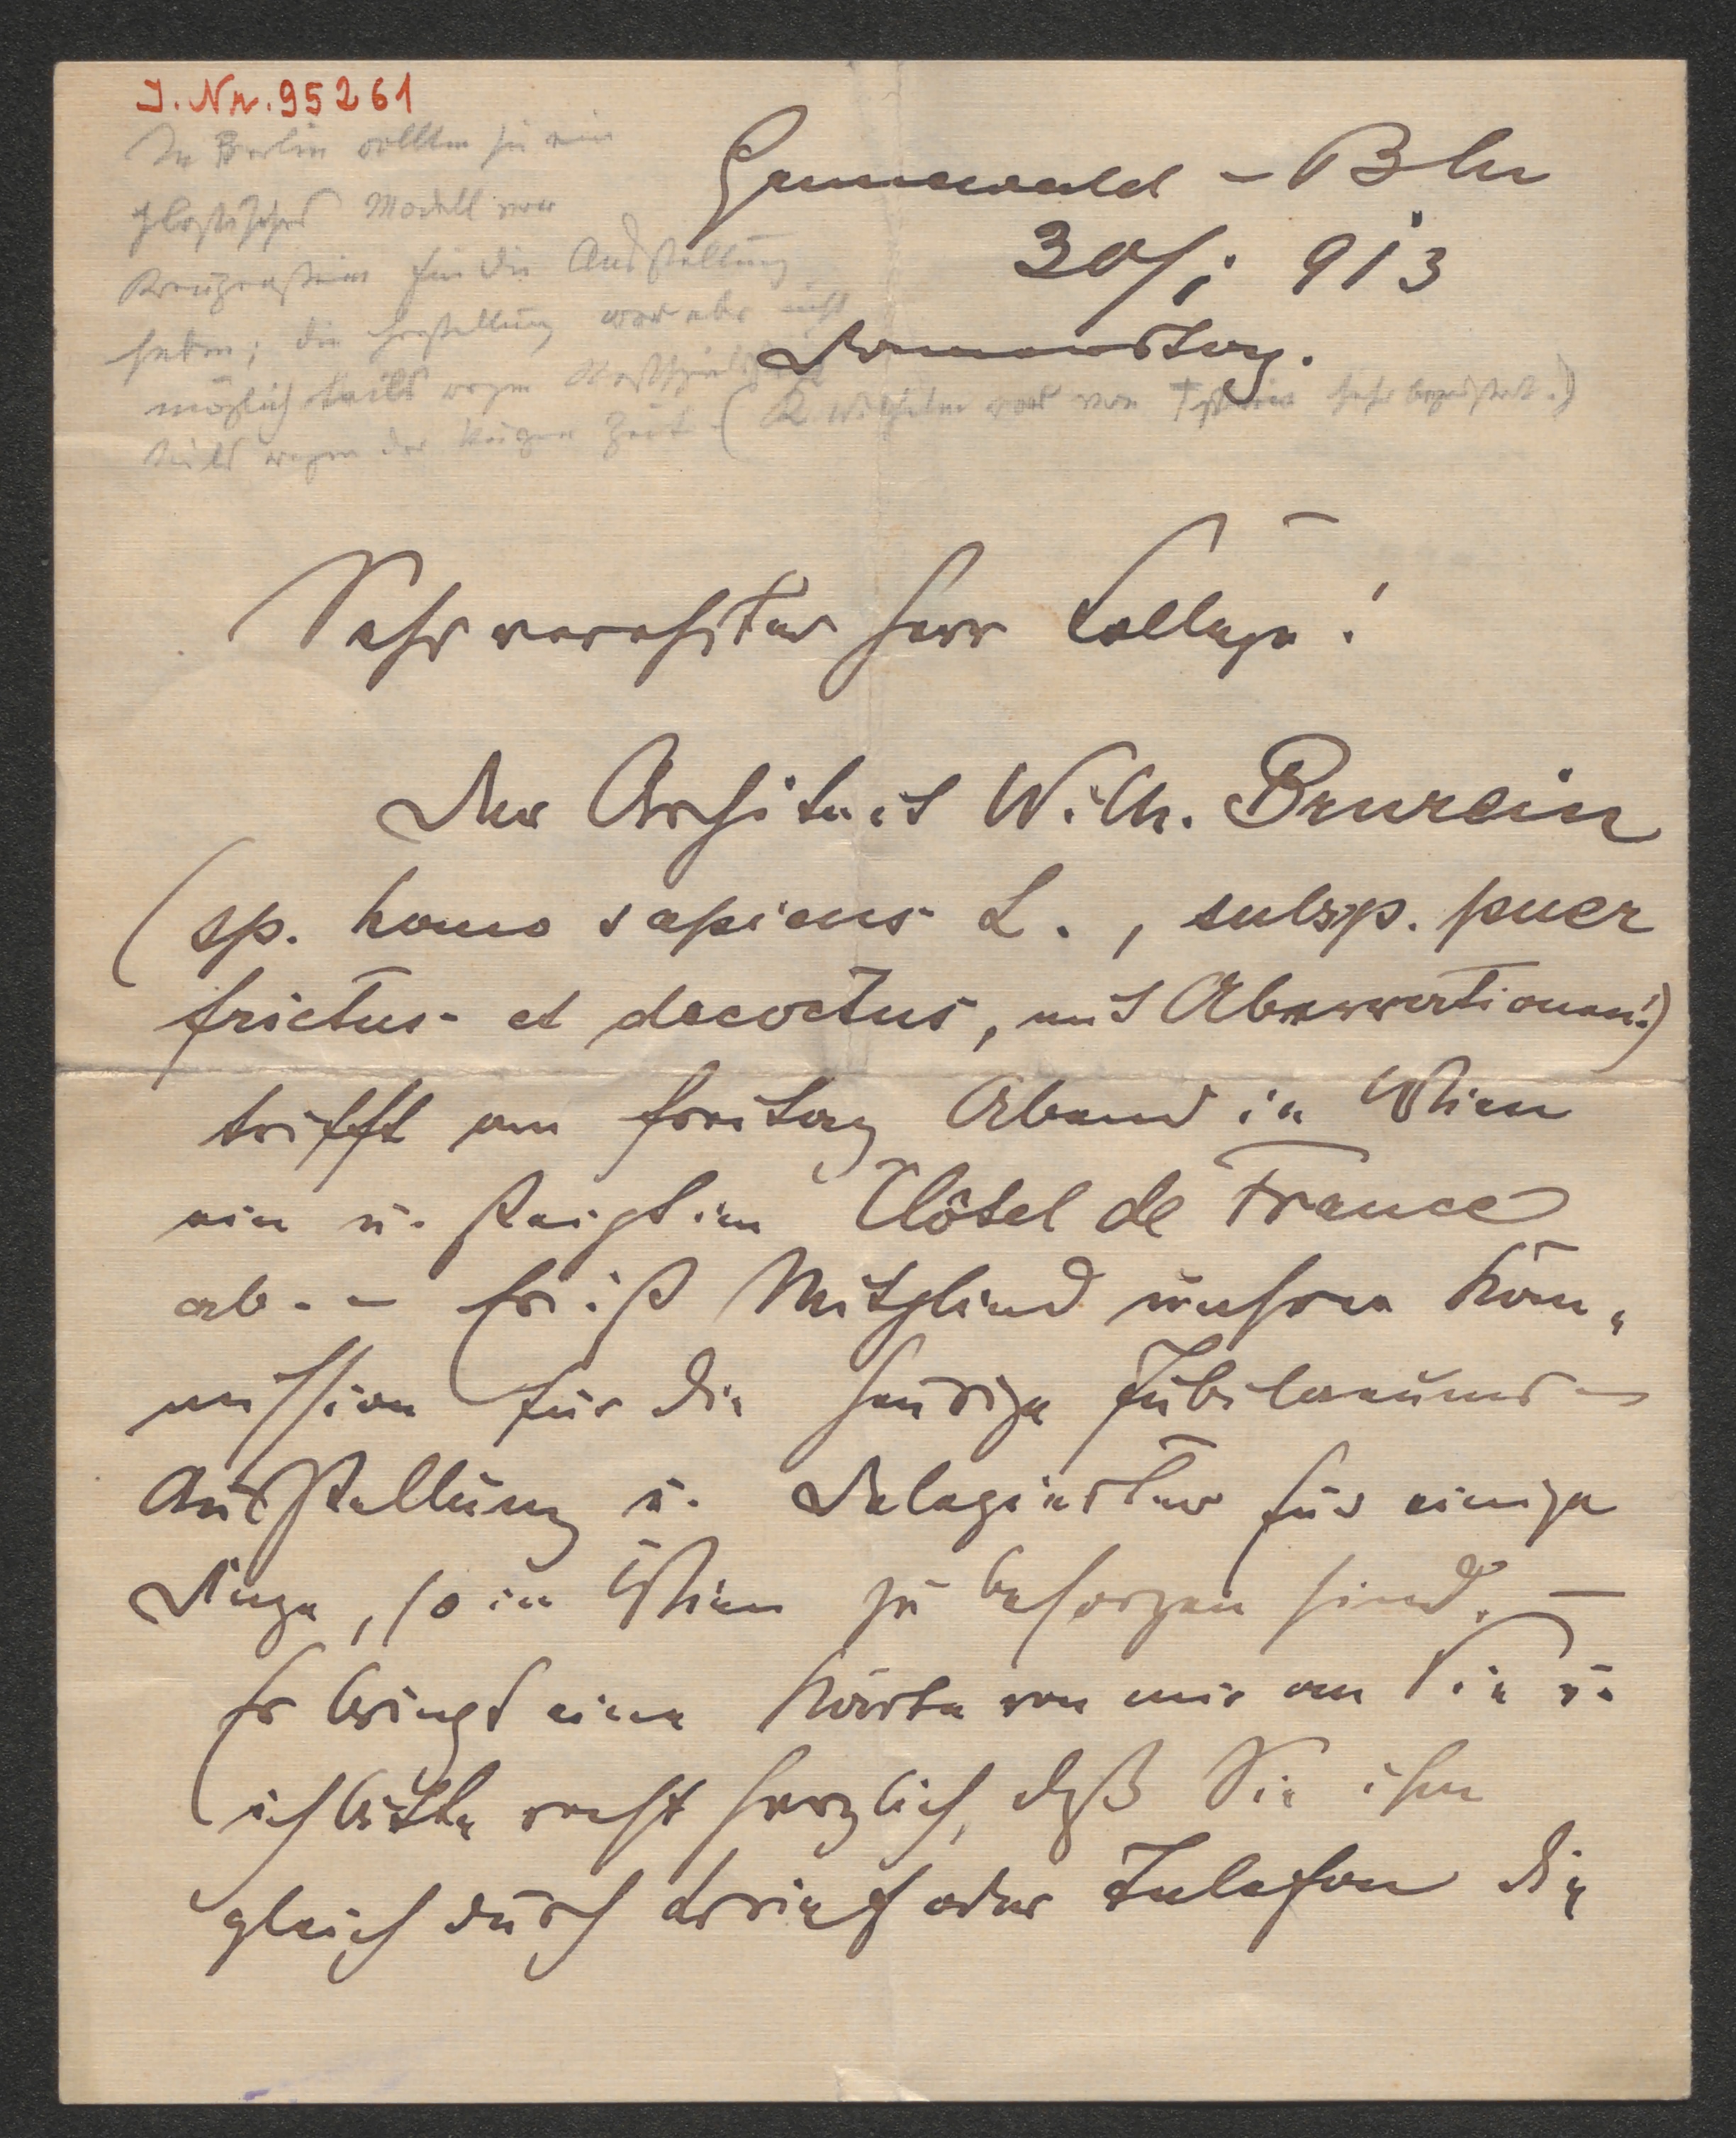 I. Nr. 95261
In Berlin wollten sie ein
plastisches Modell von
Kreuzenstein für die Ausstellung
haben; die Herstellung war aber nicht
möglich teils wegen Kostspieligkeit
teils wegen der kurzen Zeit. (K. Wilhelm war von sehr begeistert.)
Grunewald - Bln
30/1 913
Donnerstag.
Sehr verehrter Herr Kollege!
Der Architect Wilh. Brurein
(sp. homo sapiens L., subsp. puer
frictus et decoctus, mit Aberrationen!)
trifft am Freitag Abend in Wien
ein u. steigt im Hôtel de France
ab. - Er ist Mitglied unsrer Kom-
mission für die heurige Jubilaeums-
Ausstellung u. Delegierter für einige
Dinge, so in Wien zu besorgen sind. -
Er bringt eine Karte von mir an Sie u.
ich bitte recht herzlich, daß Sie ihm
gleich durch Brief oder Telefon die